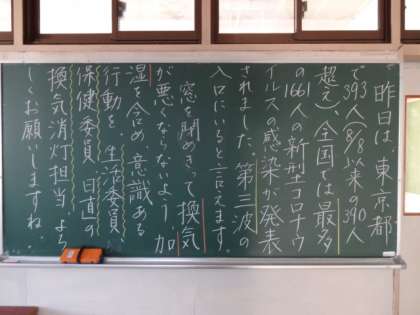 昨日は、東京都
で393人(8/8以来の390人
超え)、全国では最多
の1661人の新型コロナウ
イルスの感染が発表
されました。第三波の
入口にいると言えます。
窓を閉めきって換気
が悪くならないよう加
湿を含め、意識ある
行動を。生活委員、
保健委員、日直の
換気消灯担当、よろ
しくお願いしますね。